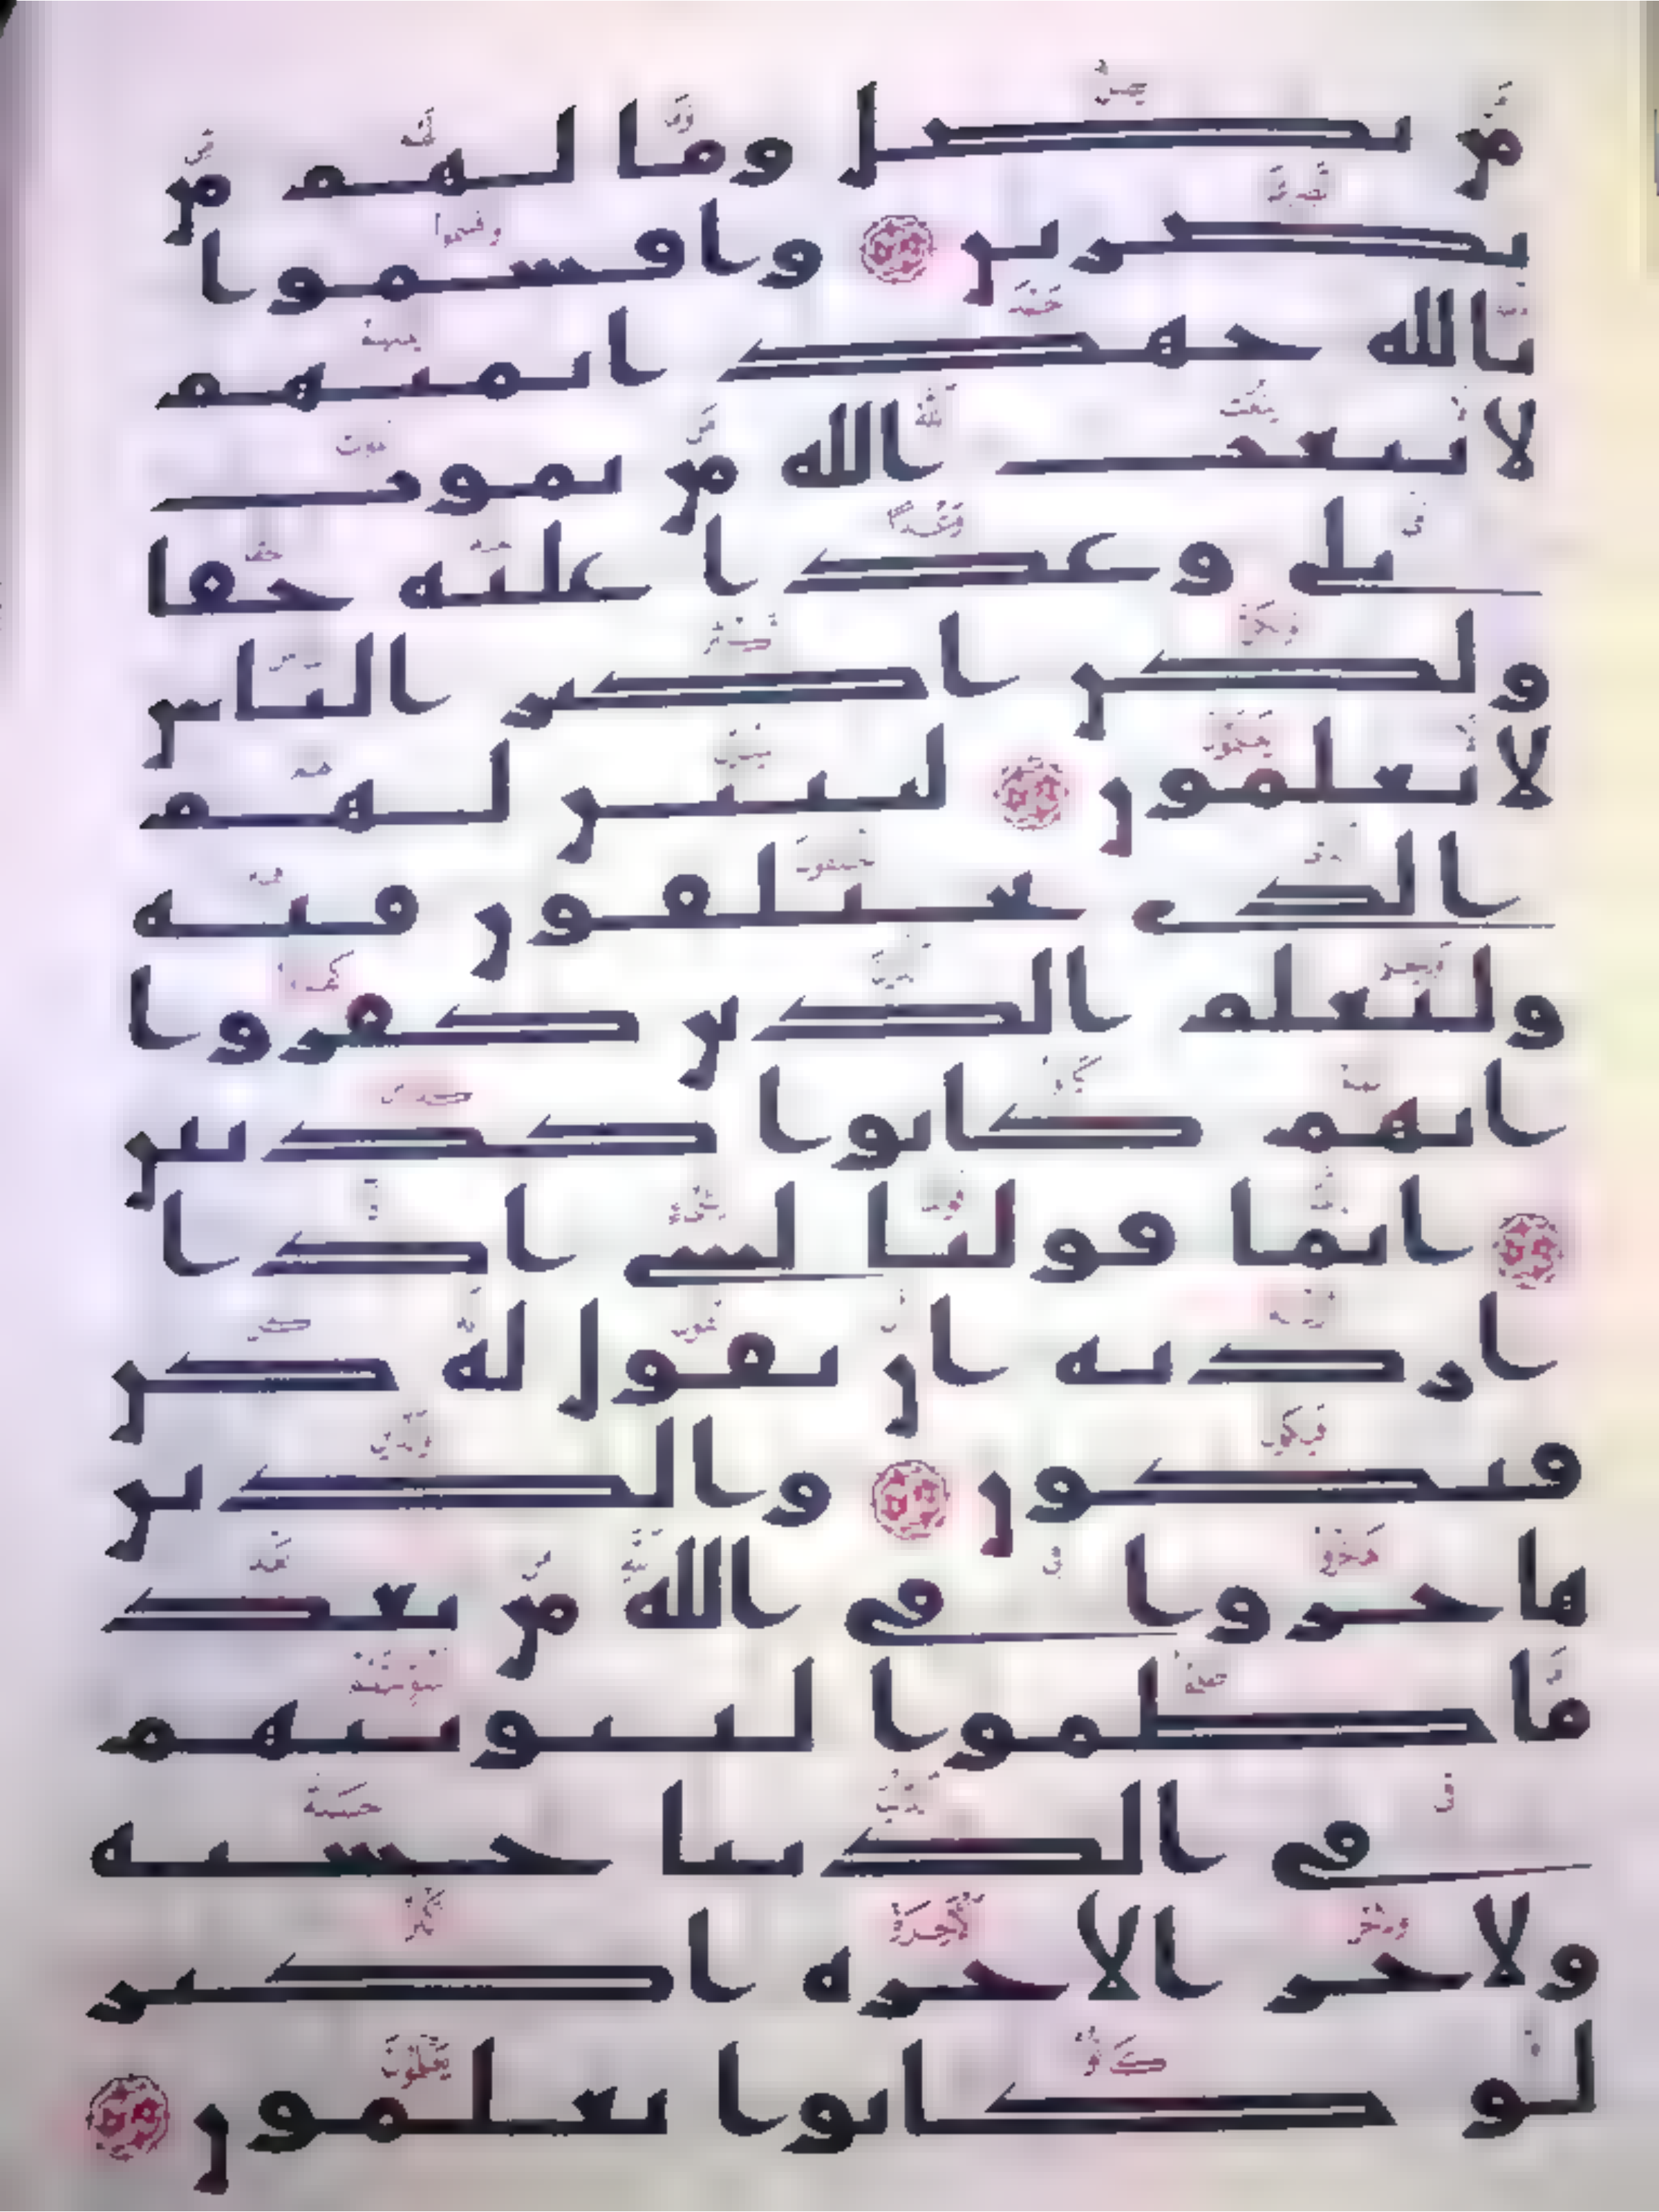 من يضل وما لهم من
نصرين واقسموا
بالله جهد ايمنهم
لا يبعث الله من يموت
بلى وعدا عليه حقا
ولكن اكثر الناس
لا يعلمون ليبين لهم
الذي يختلفون فيه
وليعلم الذين كفروا
انهم كانوا كذبين
انما قولنا لشيء اذا
اردنه ان نقول له كن
فيكون والذين
هاجروا في الله من بعد
ما ظلموا لنبوئنهم
في الدنيا حسنة
ولاجر الاخرة اكبر
لو كانوا يعلمون